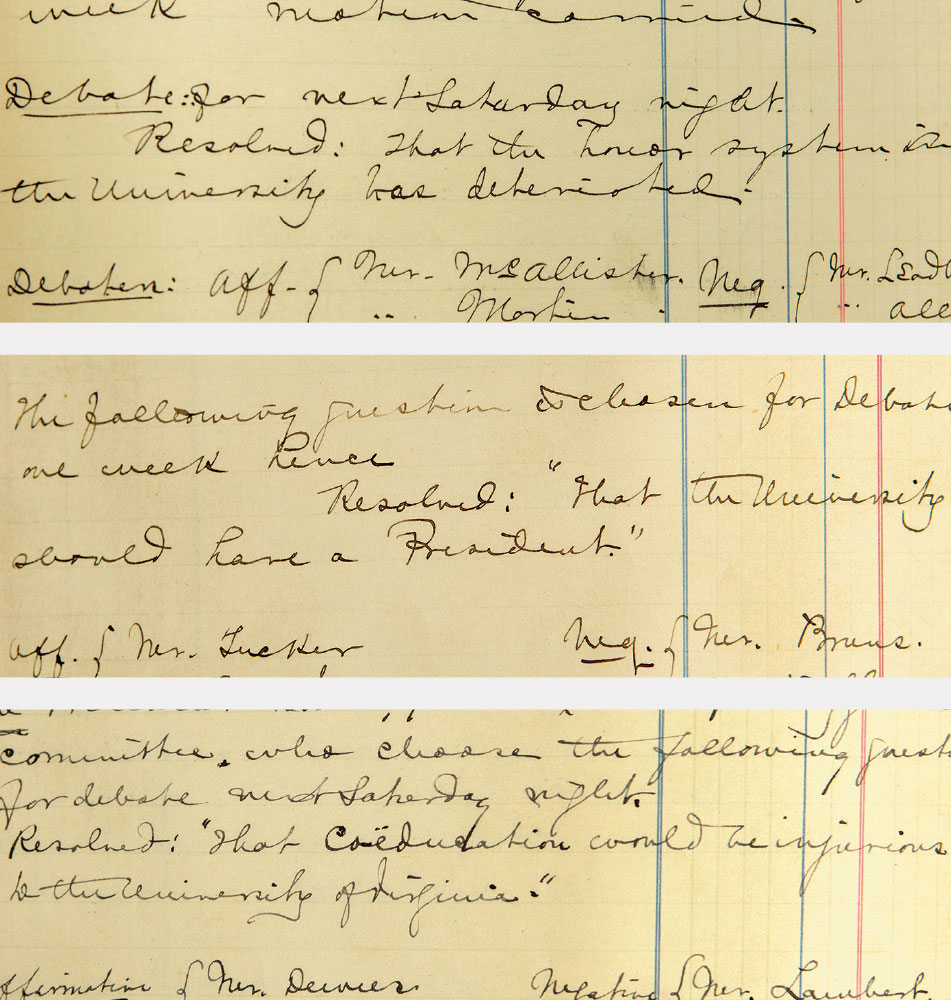 week motion carried.
Debate: for next Saturday night.
Resolved: That the honor system in
the University has deterioted.
Debaters: Aff. { Mr. McAllister. Neg. { Mr. Leadb
" Martin " All
The following question is chosen for Debate
one week hence
Resolved: "That the University
should have a President."
Aff. { Mr. Tucker Neg. { Mr. Bruns.
committee, who choose the following quest
for debate next Saterday night.
Resolved: "That Coëducation would be injurious
to the University of Virginia."
ffirmative { Mr. Negative { Mr. Lambert